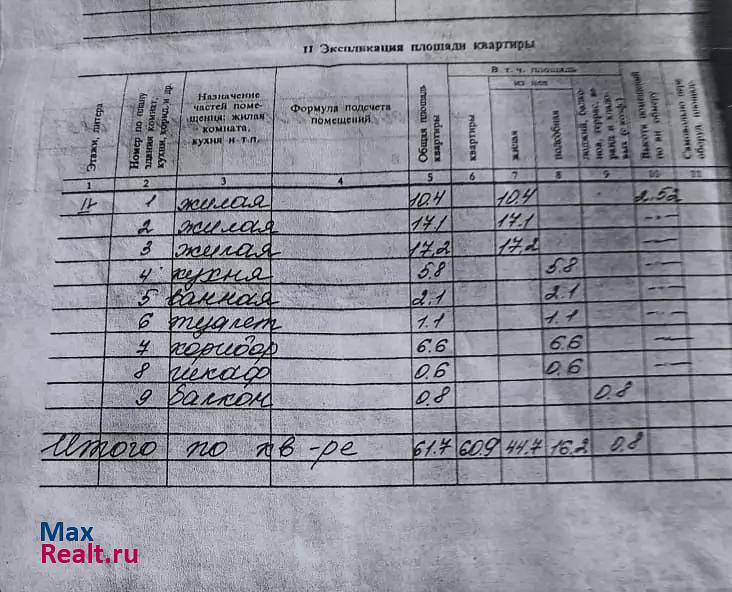 II Экспликация площади квартиры
Этажи, литера
Номер по плану здания комнат, кухни, корид. и др.
Назначение частей помещения: жилая комната, кухня и т.п.
Формула подсчета помещений
Общая площадь квартиры
В т. ч. площадь
из нее
квартиры
жилая
подсобная
лоджий, балконов, террас, веранд и кладовых (с коэф.)
Высота помещений по вн. обмеру
Самовольно
1 2 3 4 5 6 7 8 9 10 11
IV 1 жилая 10.4 10.4 2.52
2 жилая 17.1 17.1 —"—
3 жилая 17.2 17.2 —"—
4 кухня 5.8 5.8 —"—
5 ванная 2.1 2.1 —"—
6 туалет 1.1 1.1 —"—
7 коридор 6.6 6.6 —"—
8 шкаф 0.6 0.6 —"—
9 балкон 0.8 0.8
Итого по кв-ре 61.7 60.9 44.7 16.2 0.8
Max
Realt.ru